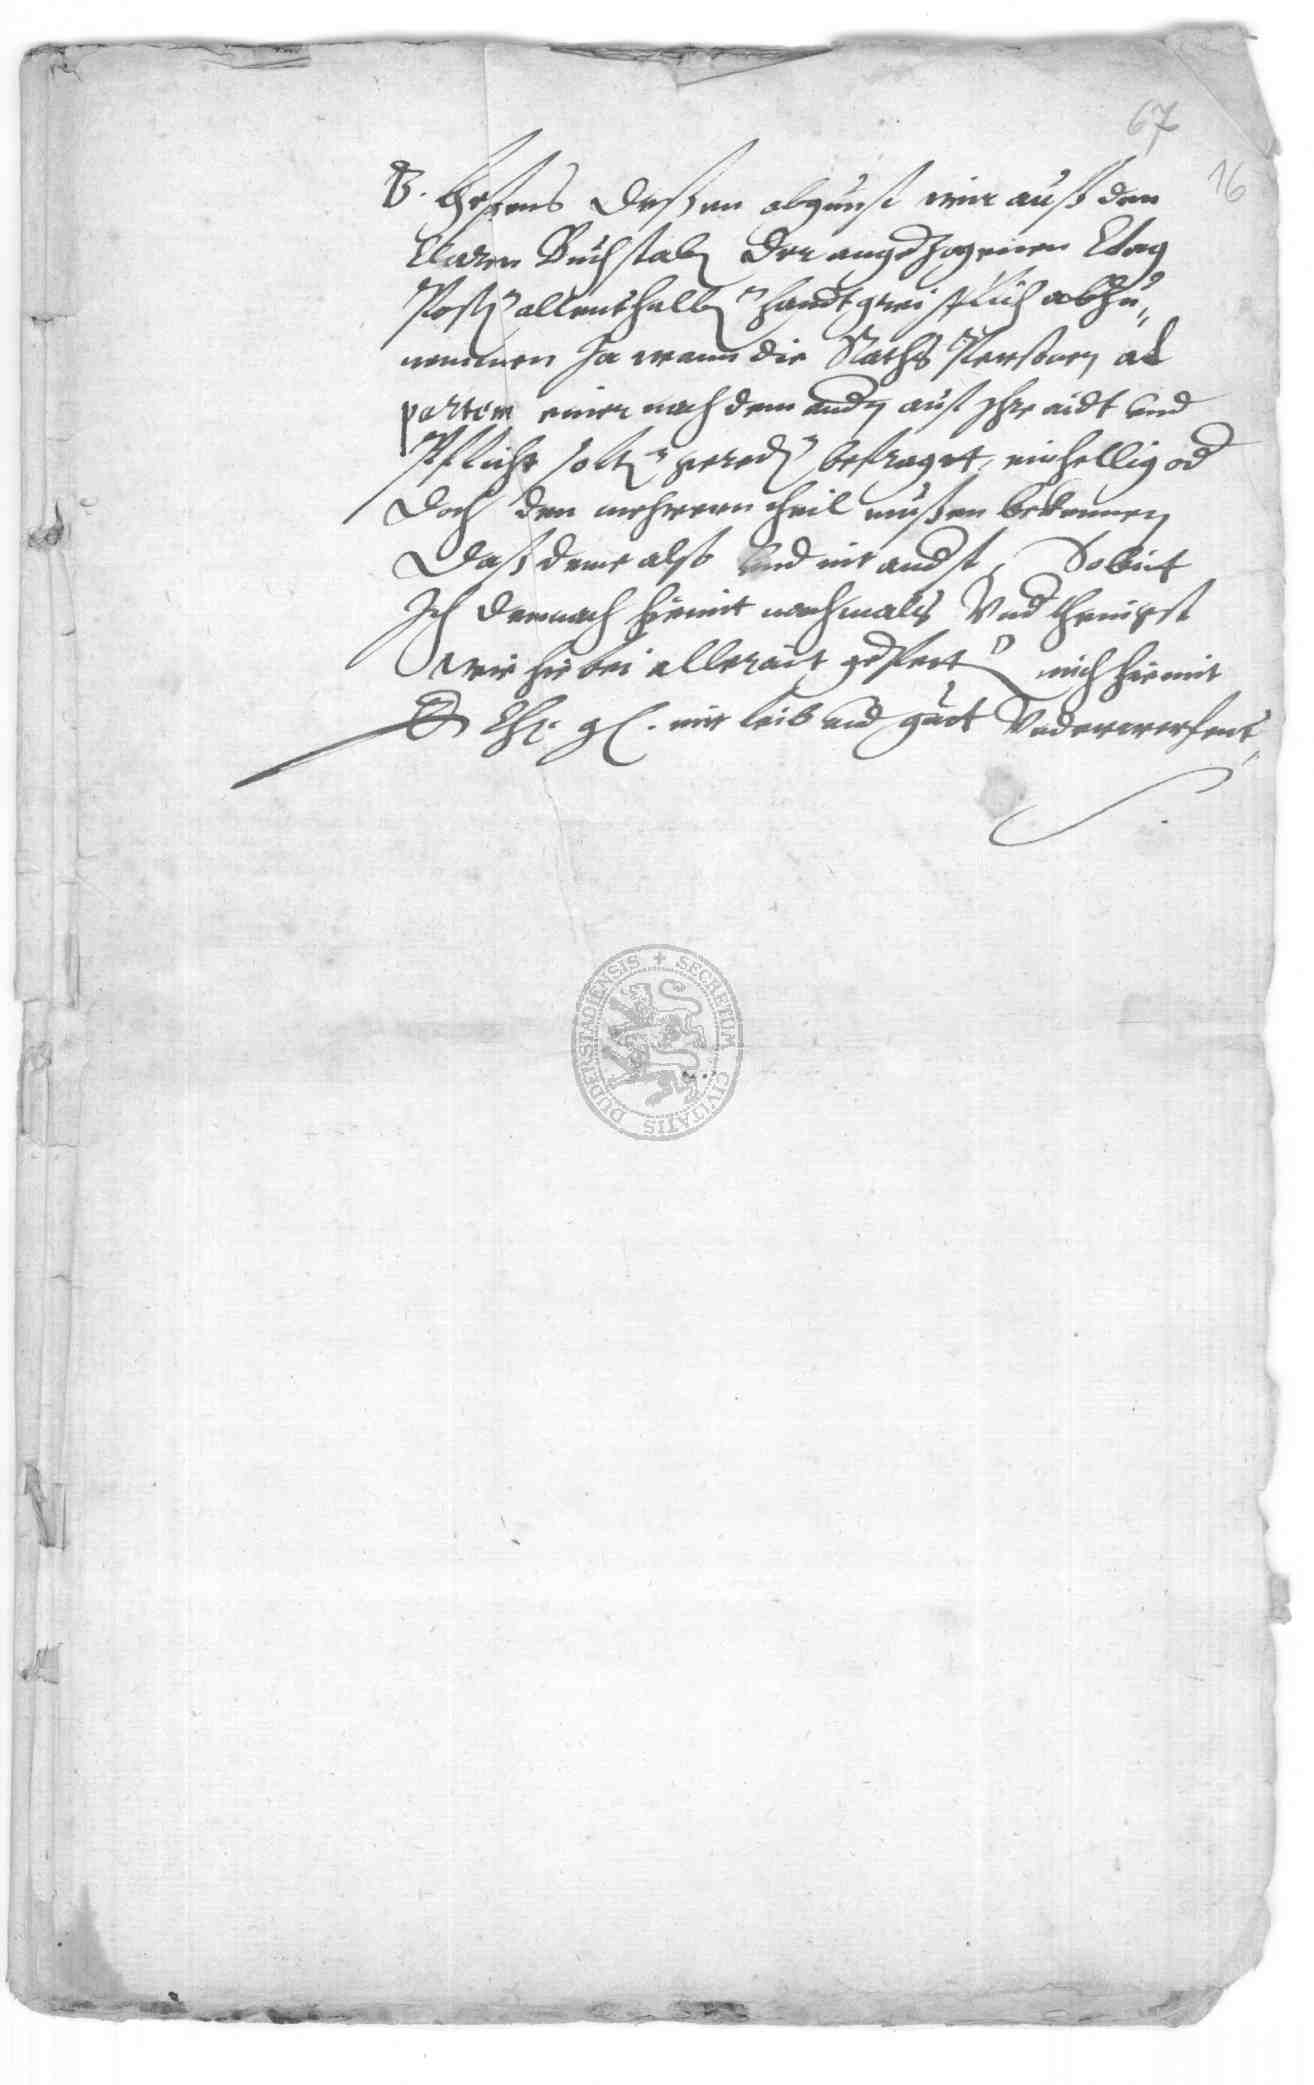 67
16
B. dessen abgunst wir auß dem
klaren Buchstaben der angezogenen Clag
Posten allenthalben handtgreifflich abzu„
nemmen Ja wann die Raths Persone ad
partem einer nach dem andern auf Ihre aidt und
Pflicht solten befraget, einhellig od
doch den mehrern theil mußen bekennen
Daß deme also und nit anderst, So bitt
Ich demnach hiemit nachmals Und
wie hie bei mich hiemit
E. gl. mit leib und guet Underwerfent
DUDERSTADIENSIS + SECRETUM CIVITATIS